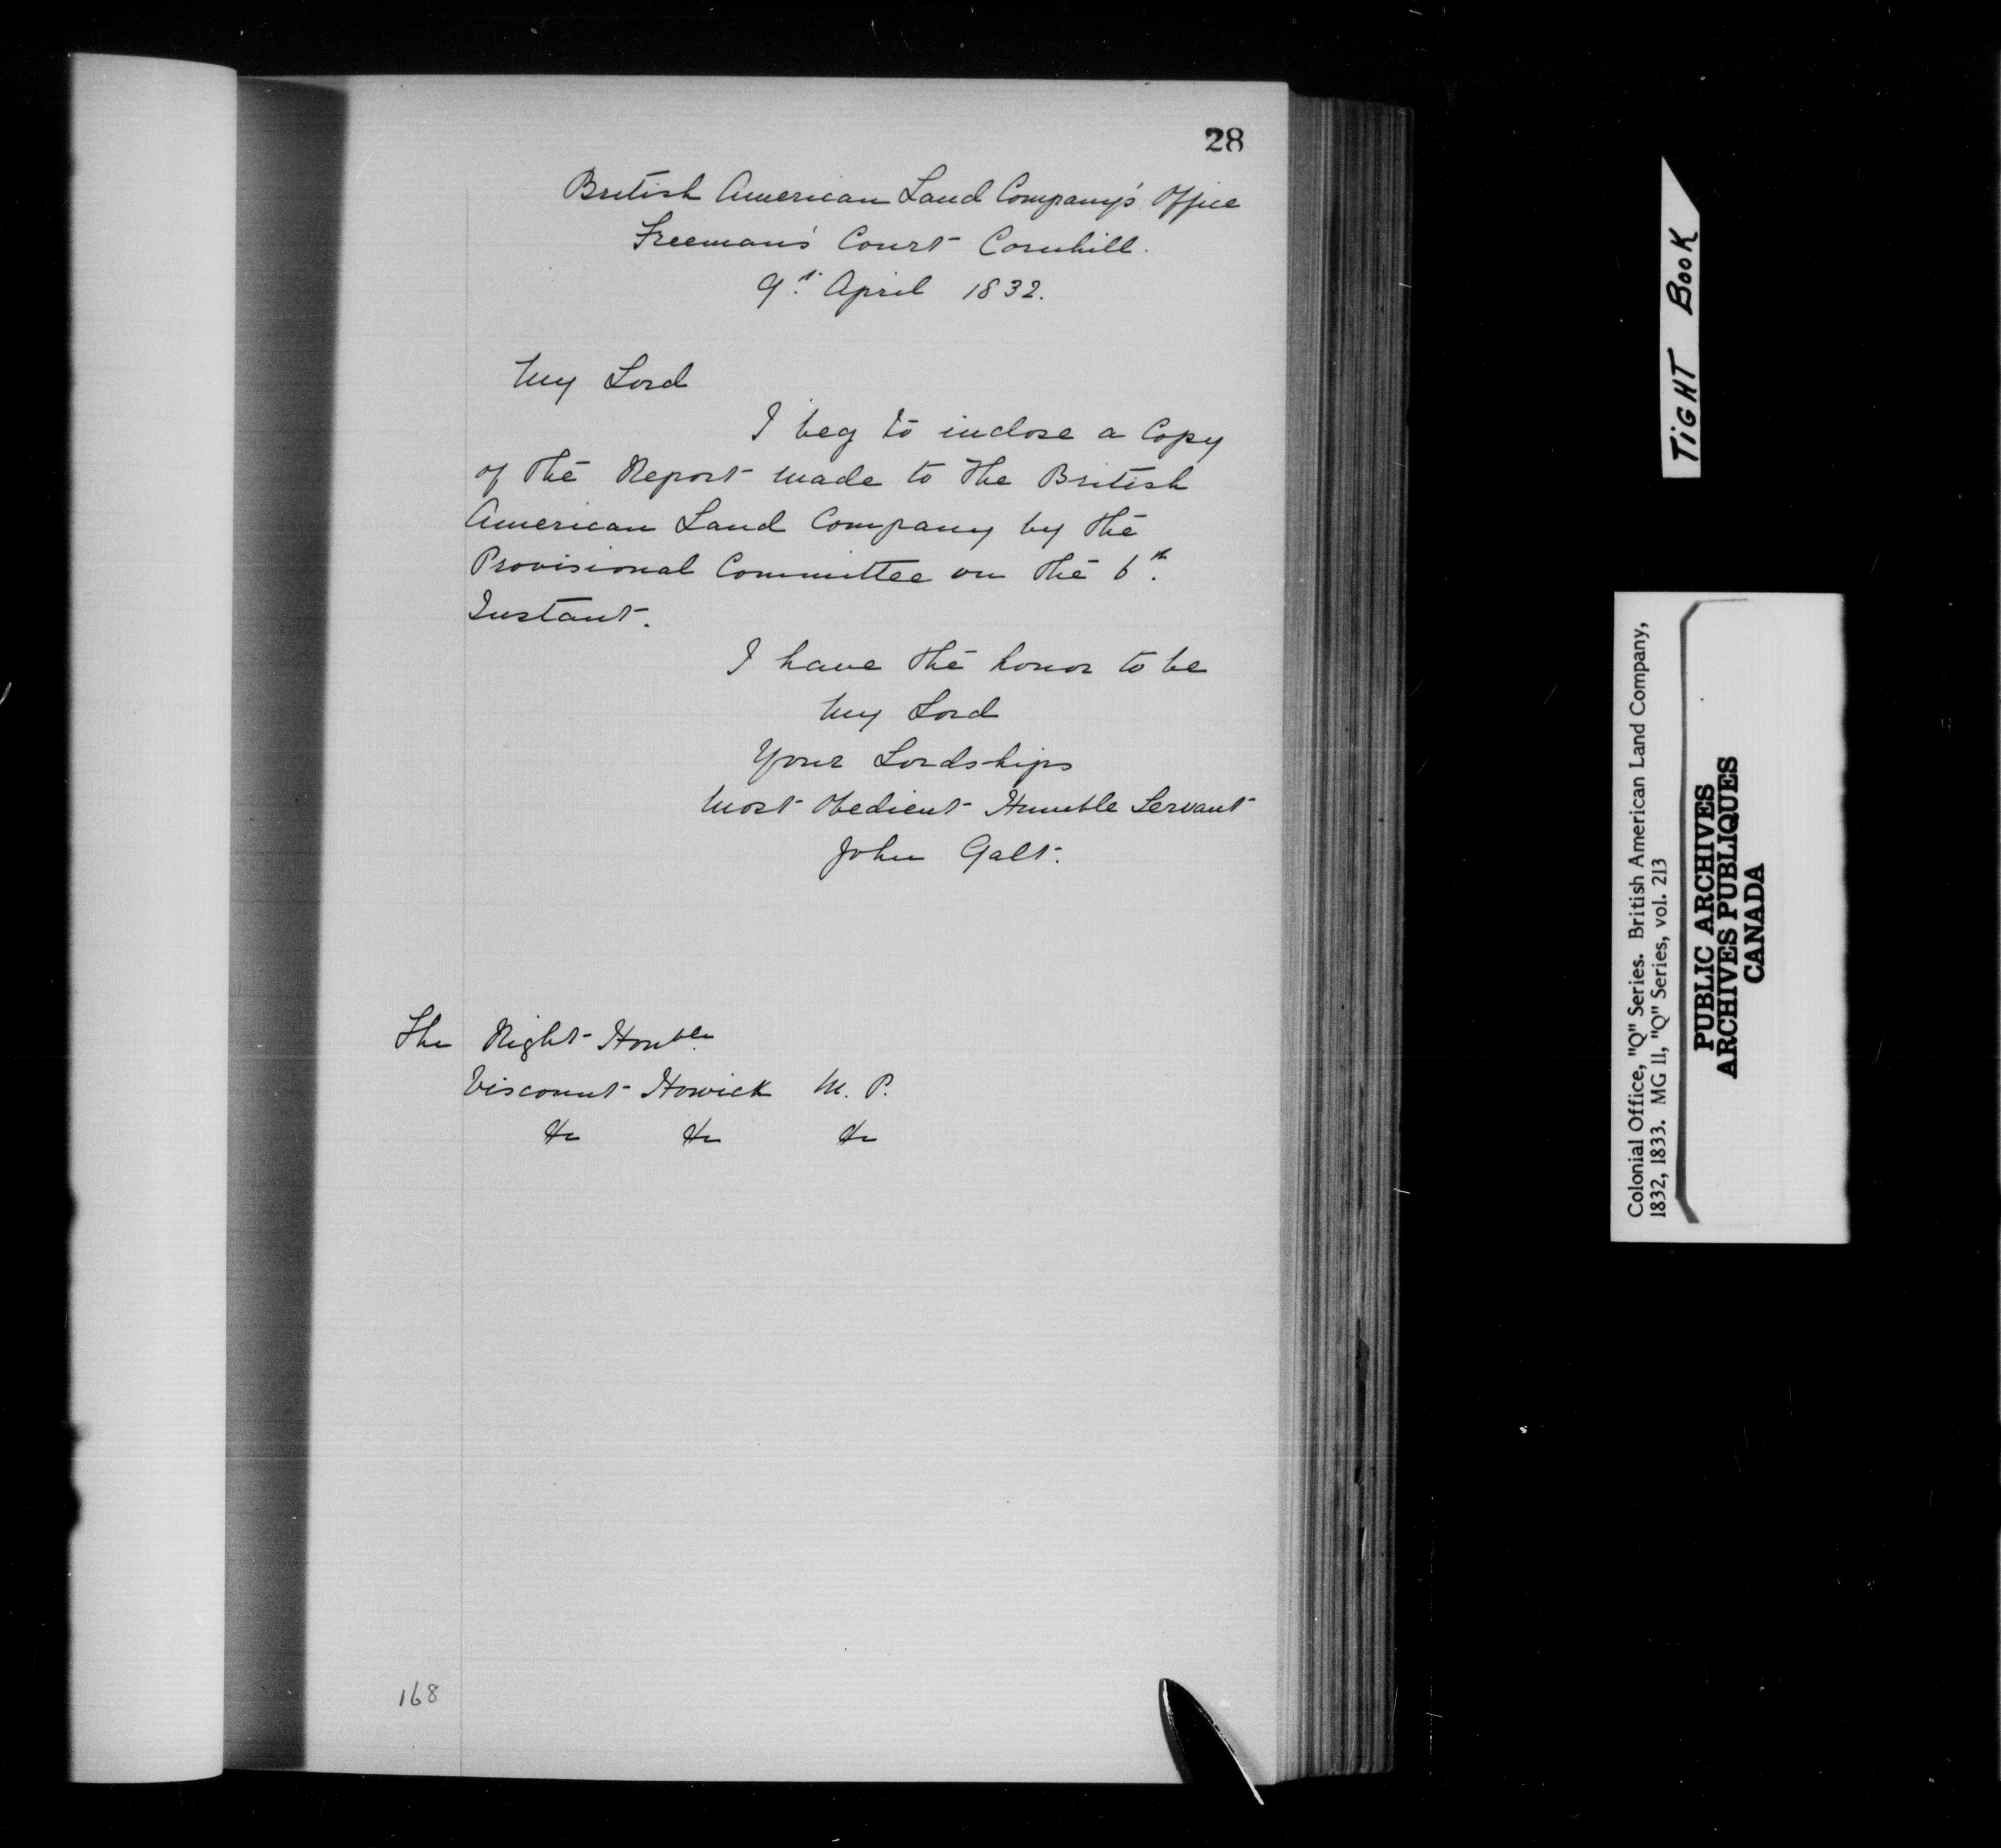 28
British American Land Company's Office
Freeman's Court Cornhill.
9th. April 1832.
My Lord
I beg to inclose a Copy
of the Report made to the British
American Land Company by the
Provisional Committee on the 6th.
Instant.
I have the honor to be
My Lord
Your Lordships
Most Obedient Humble Servant
John Galt.
The Right Honble
Viscount Howick M. P.
&c &c &c
168
TIGHT BOOK
Colonial Office, "Q" Series. British American Land Company,
1832, 1833. MG 11, "Q" Series, vol. 213
PUBLIC ARCHIVES
ARCHIVES PUBLIQUES
CANADA